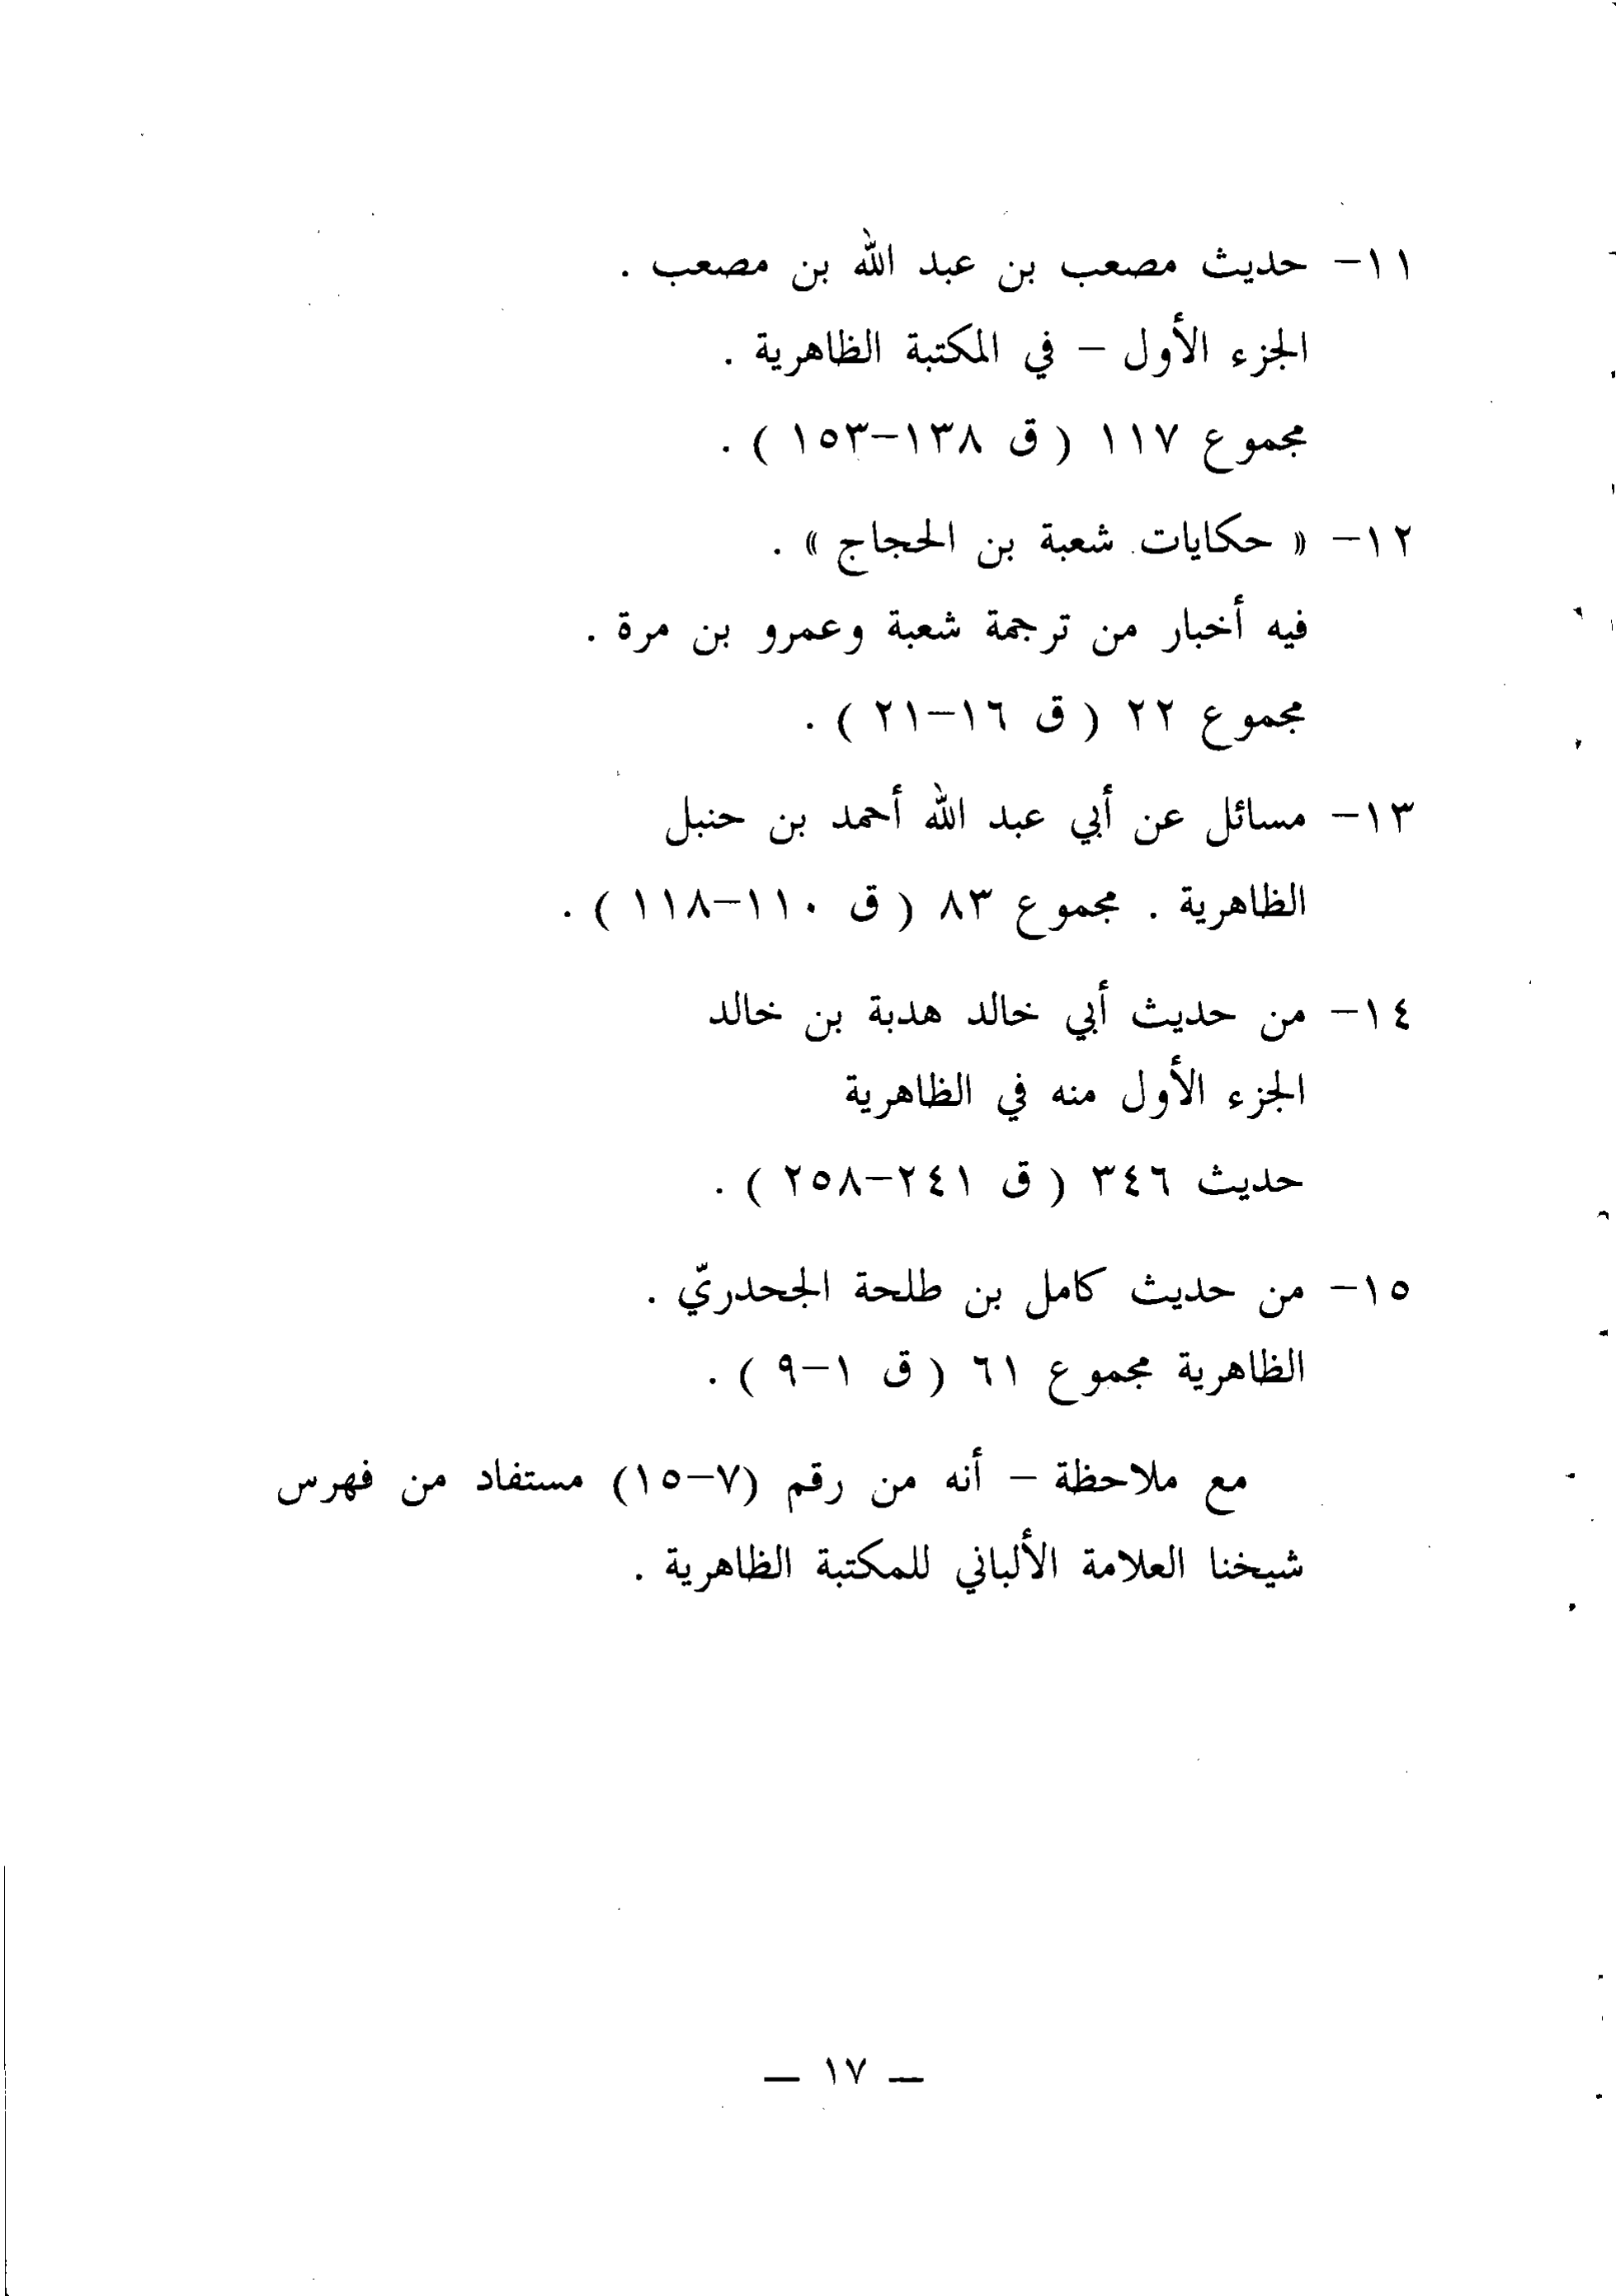 ١١- حديث مصعب بن عبد الله بن مصعب .
الجزء الأول - في المكتبة الظاهرية .
مجموع ١١٧ ( ق ١٣٨-١٥٣ ) .
١٢- « حكايات شعبة بن الحجاج » .
فيه أخبار من ترجمة شعبة وعمرو بن مرة .
مجموع ٢٢ ( ق ١٦-٢١ ) .
١٣- مسائل عن أبي عبد الله أحمد بن حنبل
الظاهرية . مجموع ٨٣ ( ق ١١٠-١١٨ ) .
١٤- من حديث أبي خالد هدبة بن خالد
الجزء الأول منه في الظاهرية
حديث ٣٤٦ ( ق ٢٤١-٢٥٨ ) .
١٥- من حديث كامل بن طلحة الجحدريّ .
الظاهرية مجموع ٦١ ( ق ١-٩ ) .
مع ملاحظة - أنه من رقم (٧-١٥) مستفاد من فهرس
شيخنا العلامة الألباني للمكتبة الظاهرية .
— ١٧ —